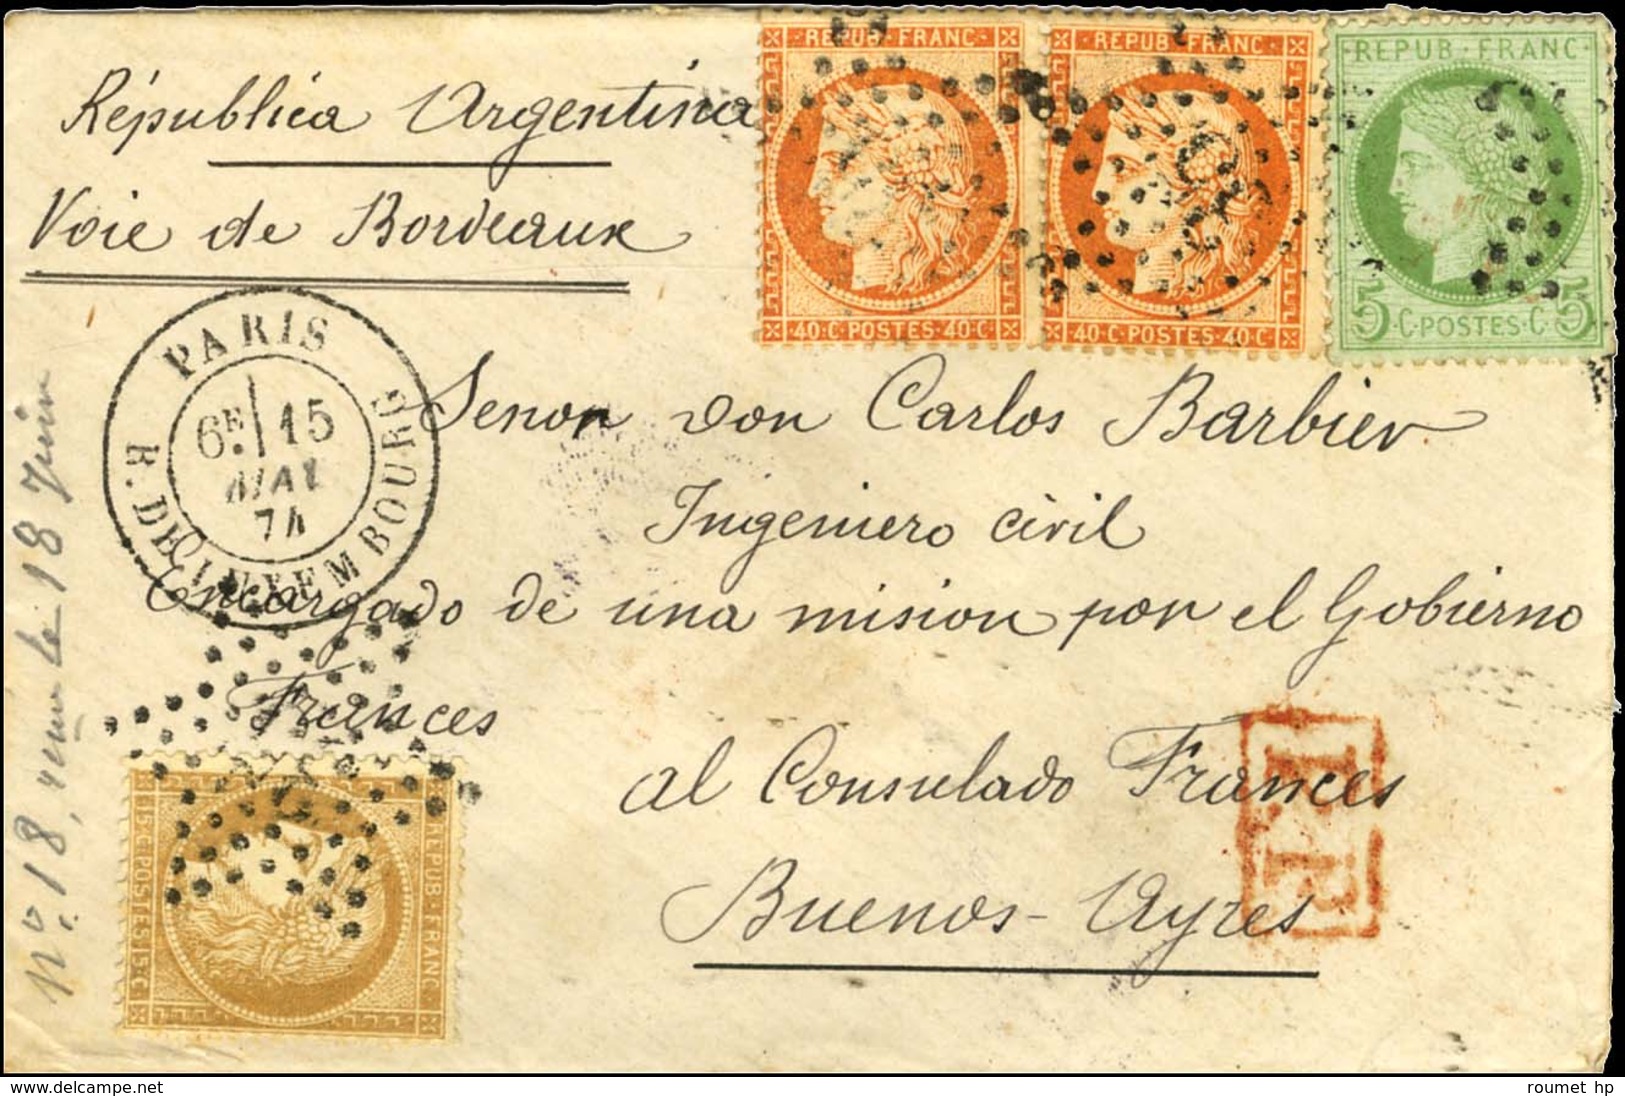 Républica Argentina
Voie de Bordeaux
REPUB · FRANC
40 · C · POSTES · 40 · C
REPUB · FRANC
40 · C · POSTES · 40 · C
REPUB · FRANC
5 · C · POSTES · C · 5
PARIS
6E 15
MAI
74
R. DU LUXEMBOURG
Senor don Carlos Barbier
Ingeniero civil
Encargado de una mision por el Gobierno
Frances
al Consulado Frances
Buenos-Ayres
P.P.
No. 18, le 18 Juin
REPUB · FRANC
15 · C · POSTES · 15 · C
www.delcampe.net
roumet hp